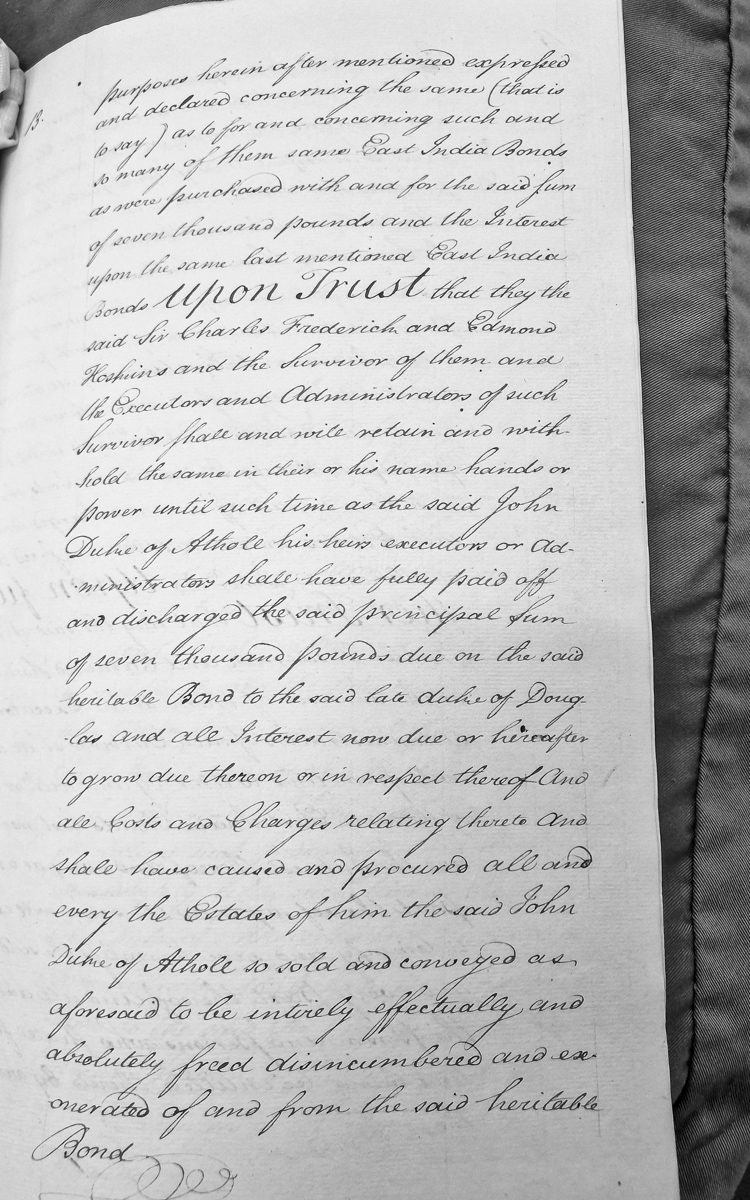 B.
purposes herein after mentioned expressed
and declared concerning the same (that is
to say) as to for and concerning such and
so many of them same East India Bonds
as were purchased with and for the said Sum
of seven thousand pounds and the Interest
upon the same last mentioned East India
Bonds Upon Trust that they the
said Sir Charles Frederick and Edmond
Hoskins and the Survivor of them and
the Executors and Administrators of such
Survivor shall and will retain and with-
hold the same in their or his name hands or
power until such time as the said John
Duke of Atholl his heirs executors or Ad-
-ministrators shall have fully paid off
and discharged the said principal Sum
of seven thousand pounds due on the said
heritable Bond to the said late duke of Doug-
-las and all Interest now due or hereafter
to grow due thereon or in respect thereof And
all Costs and Charges relating thereto And
shall have caused and procured all and
every the Estates of him the said John
Duke of Atholl so sold and conveyed as
aforesaid to be intirely effectually and
absolutely freed disincumbered and ex-
onerated of and from the said heritable
Bond